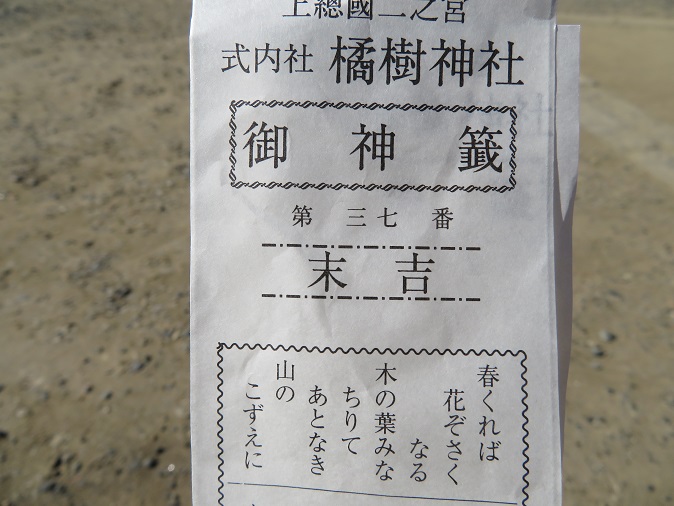 上總國二之宮
式内社 橘樹神社
御神籤
第三七番
末吉
春くれば
花ぞさく
なる
木の葉みな
ちりて
あとなき
山の
こずえに